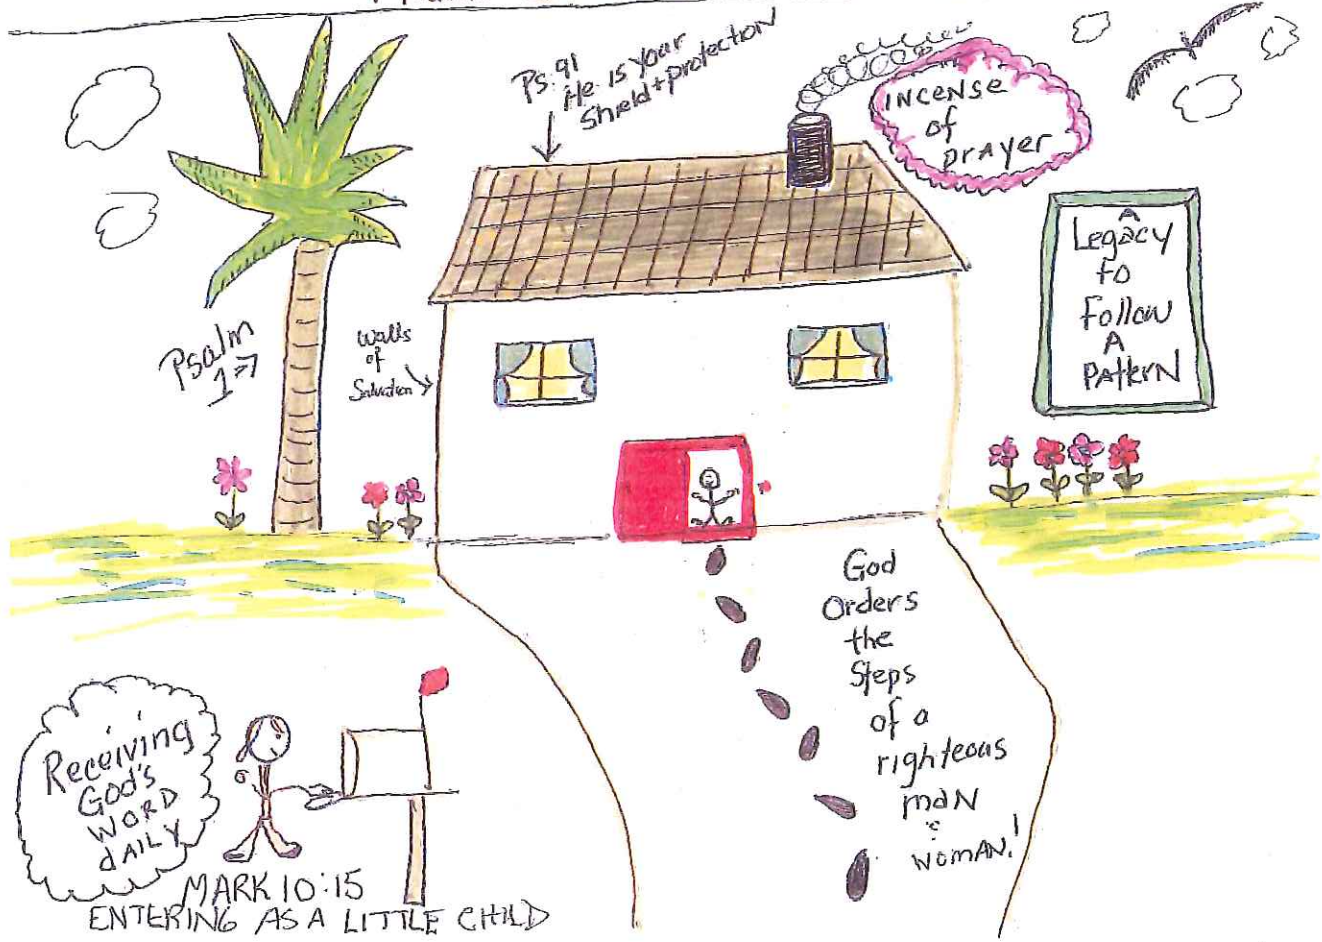 Ps. 91
He is your
Shield + protection
INCENSE
of
prAyer
A
Legacy
to
Follow
A
PAtterN
Psalm
1
Walls
of
Salvation
God
Orders
the
Steps
of a
righteous
mAN
&
womAN!
Receiving
God's
WORD
dAILY
MARK 10:15
ENTERING AS A LITTLE CHILD